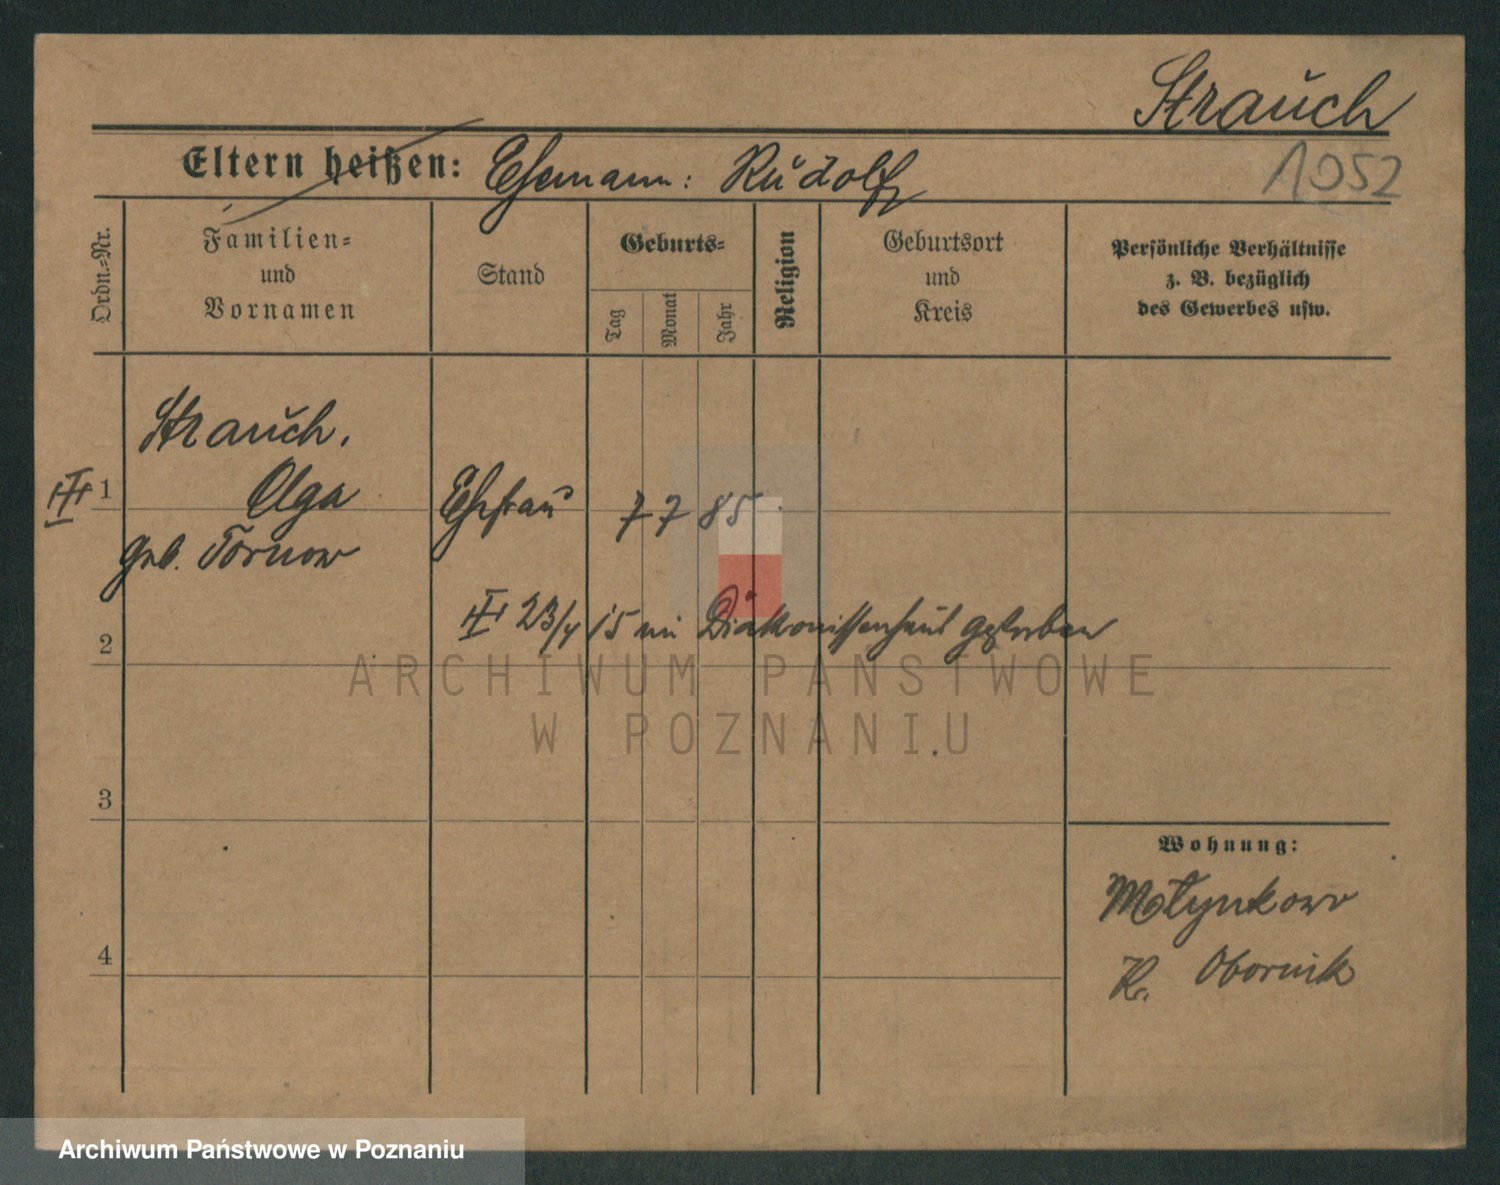 Strauch
1052
Eltern heißen: Ehemann: Rudolf
Ordn.-Nr.
Familien-
und
Vornamen
Stand
Geburts-
Tag
Monat
Jahr
Religion
Geburtsort
und
Kreis
Persönliche Verhältnisse
z. B. bezüglich
des Gewerbes usw.
Strauch,
1 Olga Ehefrau 7 7 85
geb. Tornow
23/4 15 im Diakonissenhaus gestorben
2
ARCHIWUM PAŃSTWOWE
W POZNANIU
3
Wohnung:
Mołynkowo
4
K. Obornik
Archiwum Państwowe w Poznaniu